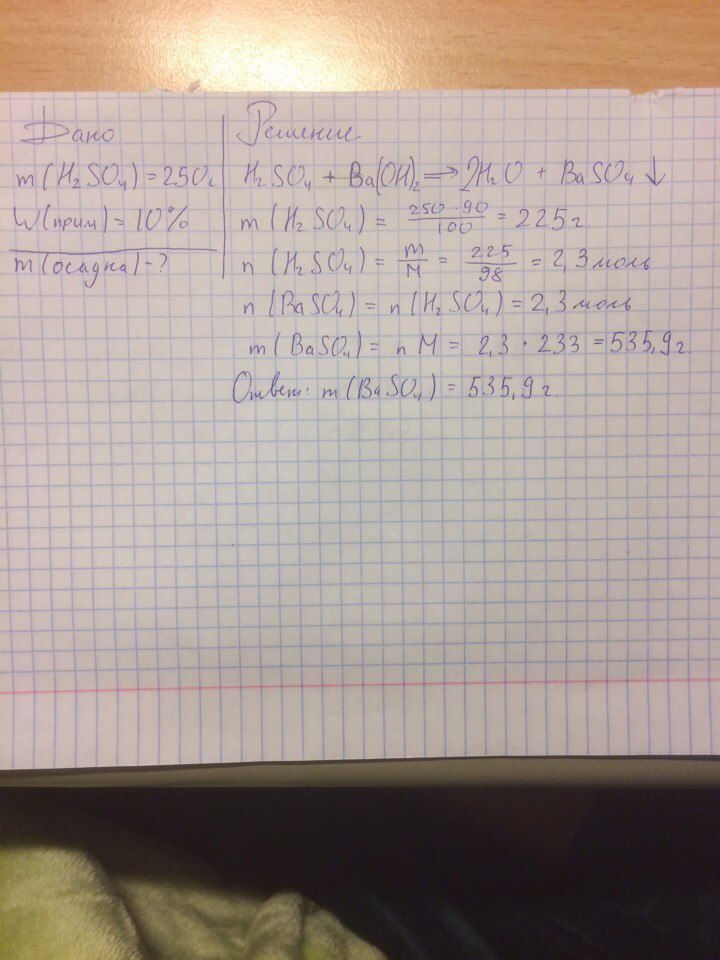 Дано
m(H₂SO₄)=250г
W(прим)=10%
m(осадка)-?
Решение
H₂SO₄ + Ba(OH)₂ ⟹ 2H₂O + BaSO₄ ↓
m(H₂SO₄) = 250·90/100 = 225г.
n(H₂SO₄) = m/M = 225/98 = 2,3моль
n(BaSO₄) = n(H₂SO₄) = 2,3моль
m(BaSO₄) = nM = 2,3 · 233 = 535,9г.
Ответ: m(BaSO₄) = 535,9г.